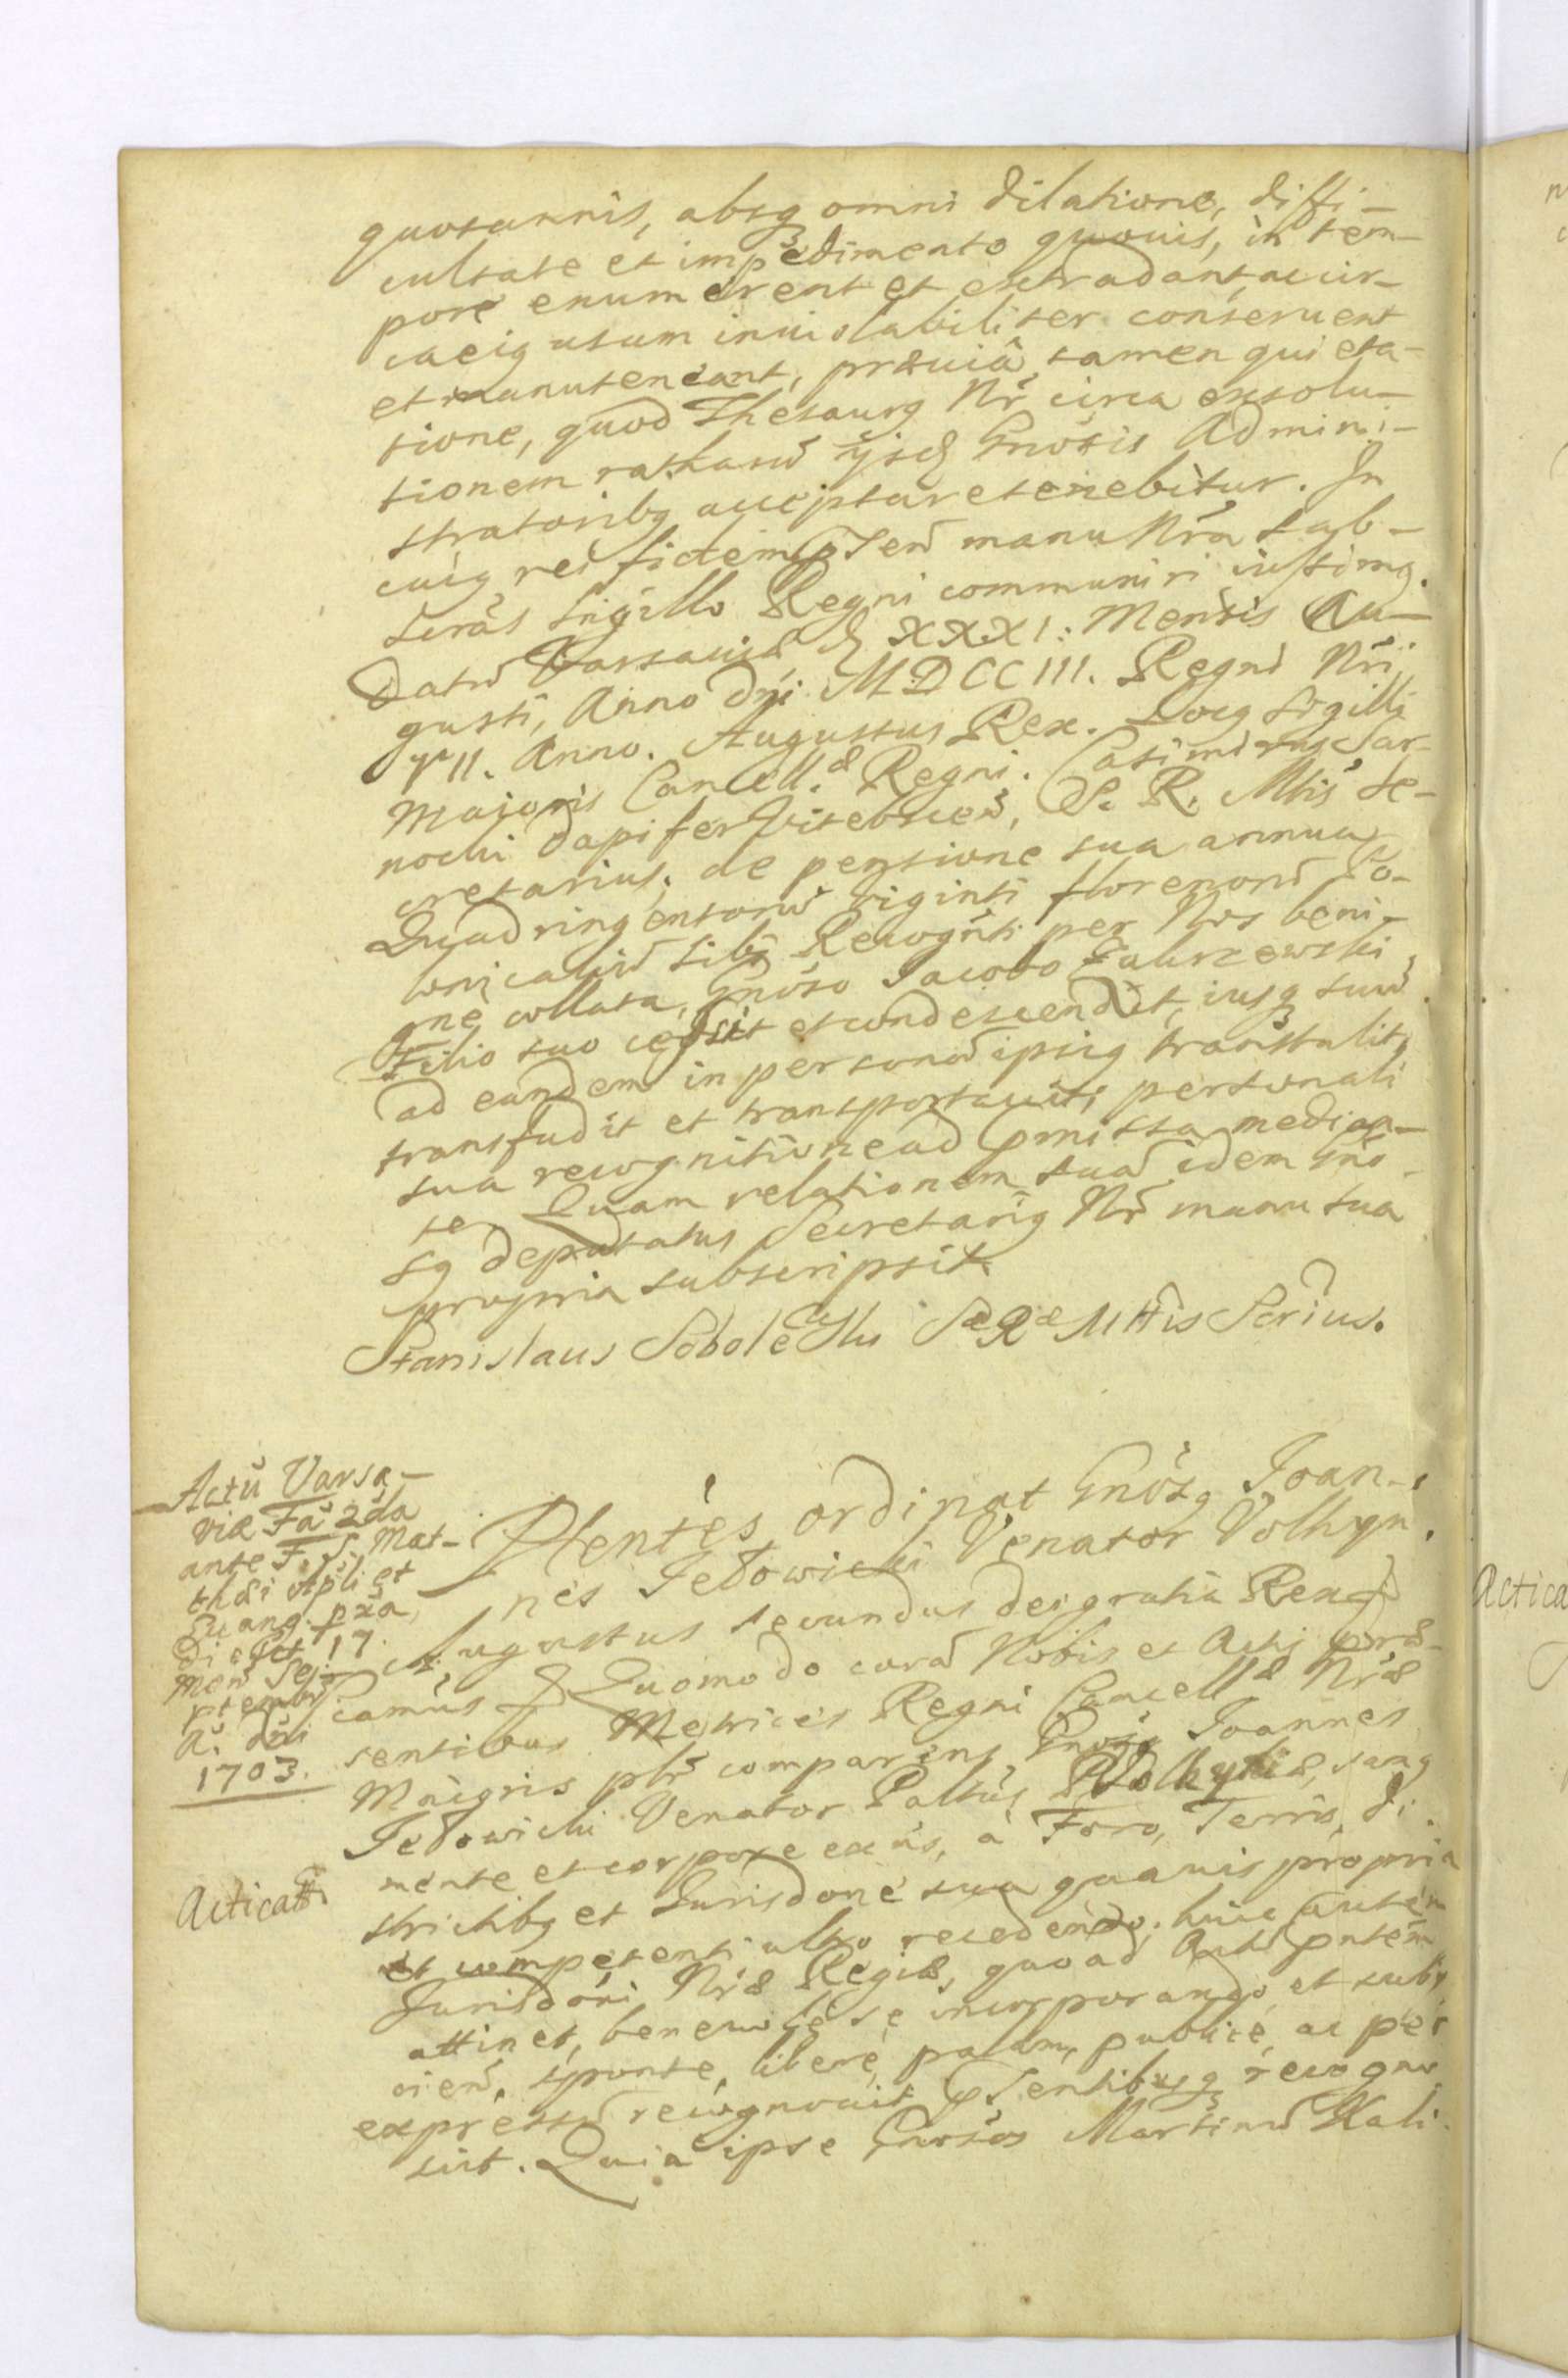 quotannis, absq omni dilatione, diffi-
cultate et impedimento quovis, in tem-
pore enumerent et extradant, ac cir-
ca eiq usum inviolabiliter conseruent
et manuteneant, præuiâ tamen quieta-
tione, quod Thesaurq Nr̃ circa exsolu-
tionem ratharũ ijsd Gnosis Admini-
stratoribq acceptare tenebitur. In
cuiq rei fidem pnsen manu Nrã sub-
scras Sigillo Regni communiri iussimq.
Datũ Varsaviæ d XXXI: Mensis Au-
gusti, Anno Dni MDCCIII. Regni Nri
VII. Anno. Augustus Rex. Locq Sigilli
Majoris Cancell.æ Regni. Casimirus Sar-
nocki Dapifer Vitebscen, S. R. Mtis Se-
cretarius, de pensione sua annua
Quadringentorũ viginti florenorũ Po-
lonicaliũ sibi Recognti per Nos beni-
gne collata, Gnoso Jacobo Zakrzewski
Filio suo cessit et condescendit, iusq suũ
ad eundem in personã ipsiq transtulit,
transfudit et transportavit, personali
sua recognitione ad pmissa median-
te, Quam relationem suã idem Gno-
sq deputatus Secretariq Nr̃ manu sua
propria subscripsit.
Stanislaus Sobolewski SæRæMttis Scrius.
Actũ Varsa-
viæ Fa 2da
ante F. S. Mat-
thæi Apli et
Euang. pxa
Di e Set 17.
men Se-
ptembr
A. Dni
1703.
Plentes ordinat Gnosq Joan-
nes Jełowicki Venator Volhyn.
Augustus secundus dei gratia Rex
camus Quomodo corã Nobis et Actis præ-
sentibus Metrices Regni Cancellæ Nræ
Maioris plr comparens Gnosq Joannes
Jełowicki Venator Paltus Volhyniæ, sang
mente et corpore exns, à Foro, Terris, Di-
Acticatt
strictibq et Jurisdone sua quauis propria
et competenti ultro recedendo, huic autem
Jurisdoni Nræ Regiæ, quoad Actũ pntem
attinet, beneuole se incorporando et subij
ciend, sponte, libere, palam, publice, ac per
expressũ recognouit psentibusq recogno
scit. Quia ipse Gnosos Martinũ Kali-